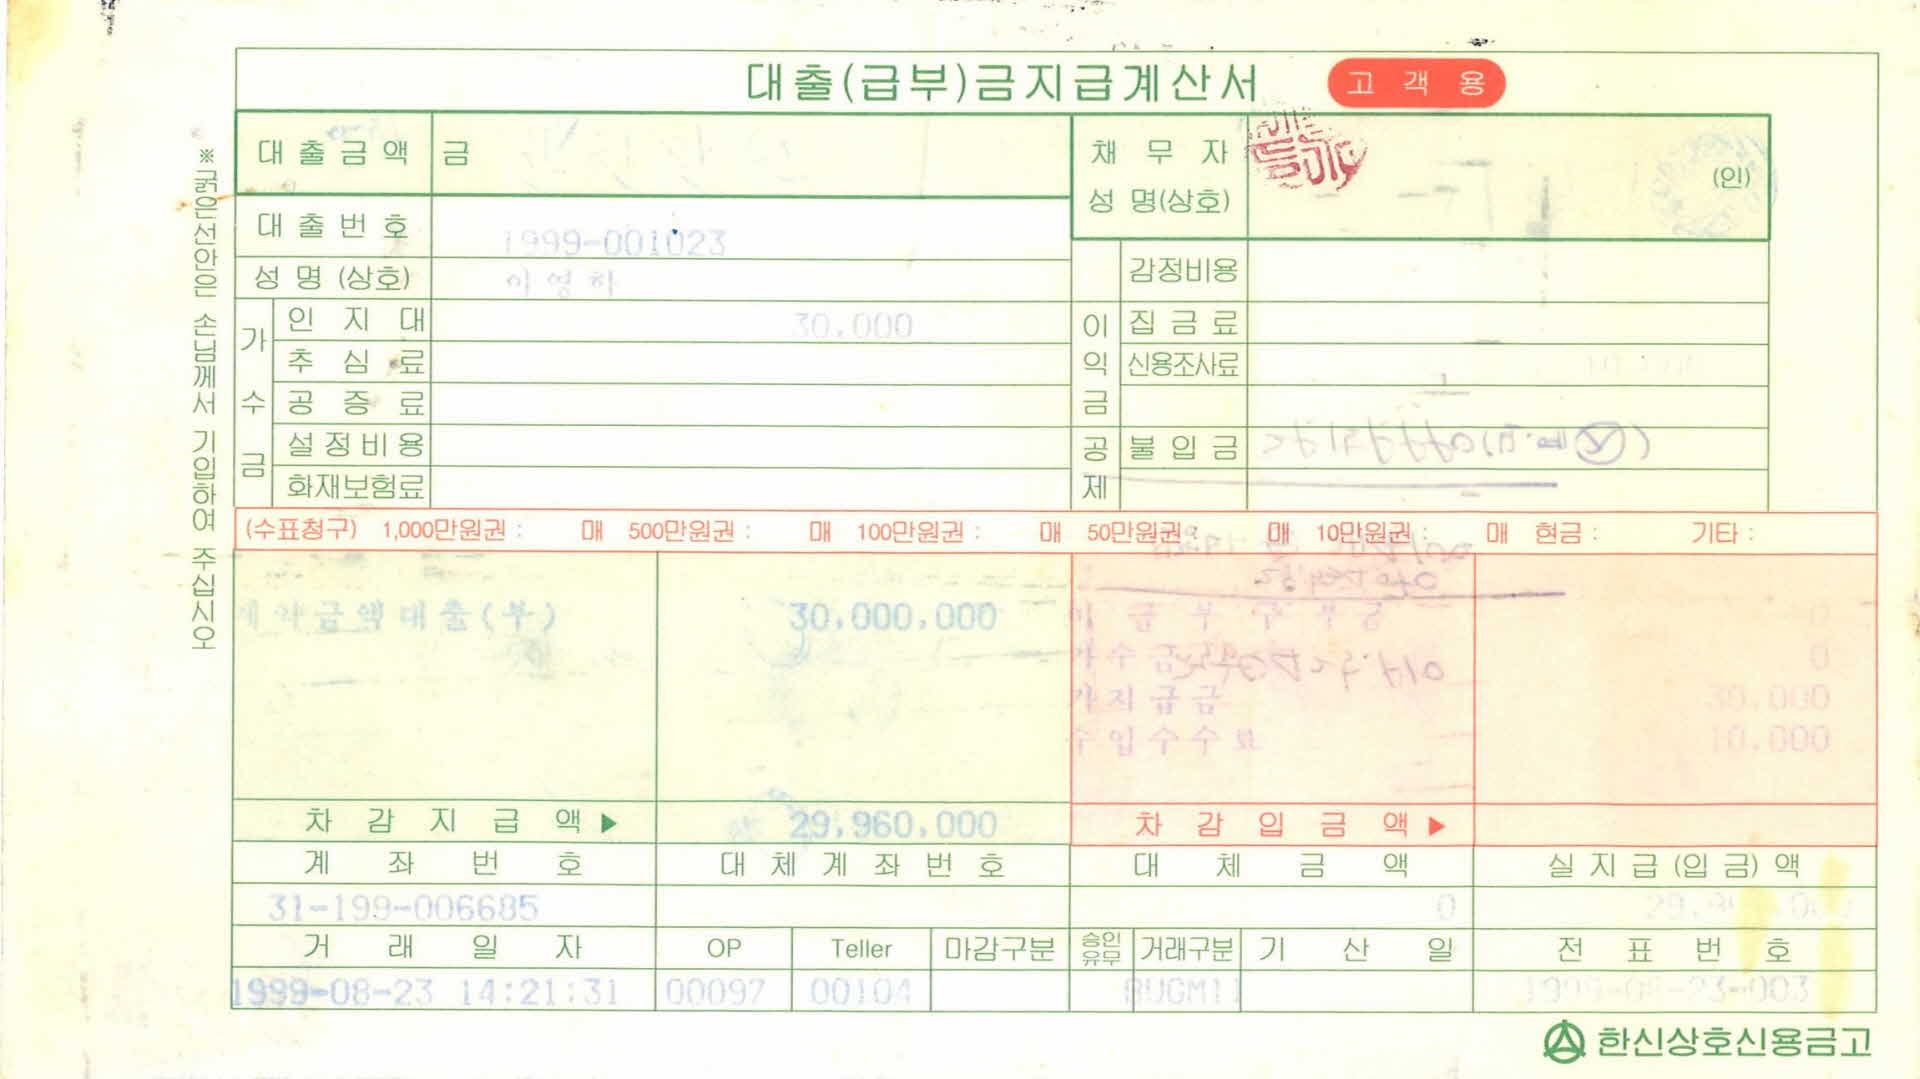 대출(급부)금지급계산서 고객용
※굵은선안은 손님께서 기입하여 주십시오
대출금액 금
채무자 성명(상호) (인)
대출번호 1999-001023
성명(상호) 이영하
가수금
인지대 30,000
추심료
공증료
설정비용
화재보험료
이익금공제
감정비용
집금료
신용조사료
불입금
(수표청구) 1,000만원권: 매 500만원권: 매 100만원권: 매 50만원권: 매 10만원권: 매 현금: 기타:
금액대출(부) 30,000,000
0
가수금 0
가지급금 30,000
수입수수료 10,000
차감지급액▶ 29,960,000 차감입금액▶
계좌번호 대체계좌번호 대체금액 실지급(입금)액
31-199-006685 0
거래일자 OP Teller 마감구분 승인유무 거래구분 기산일 전표번호
1999-08-23 14:21:31 00097 00104 1999-08-23-003
한신상호신용금고